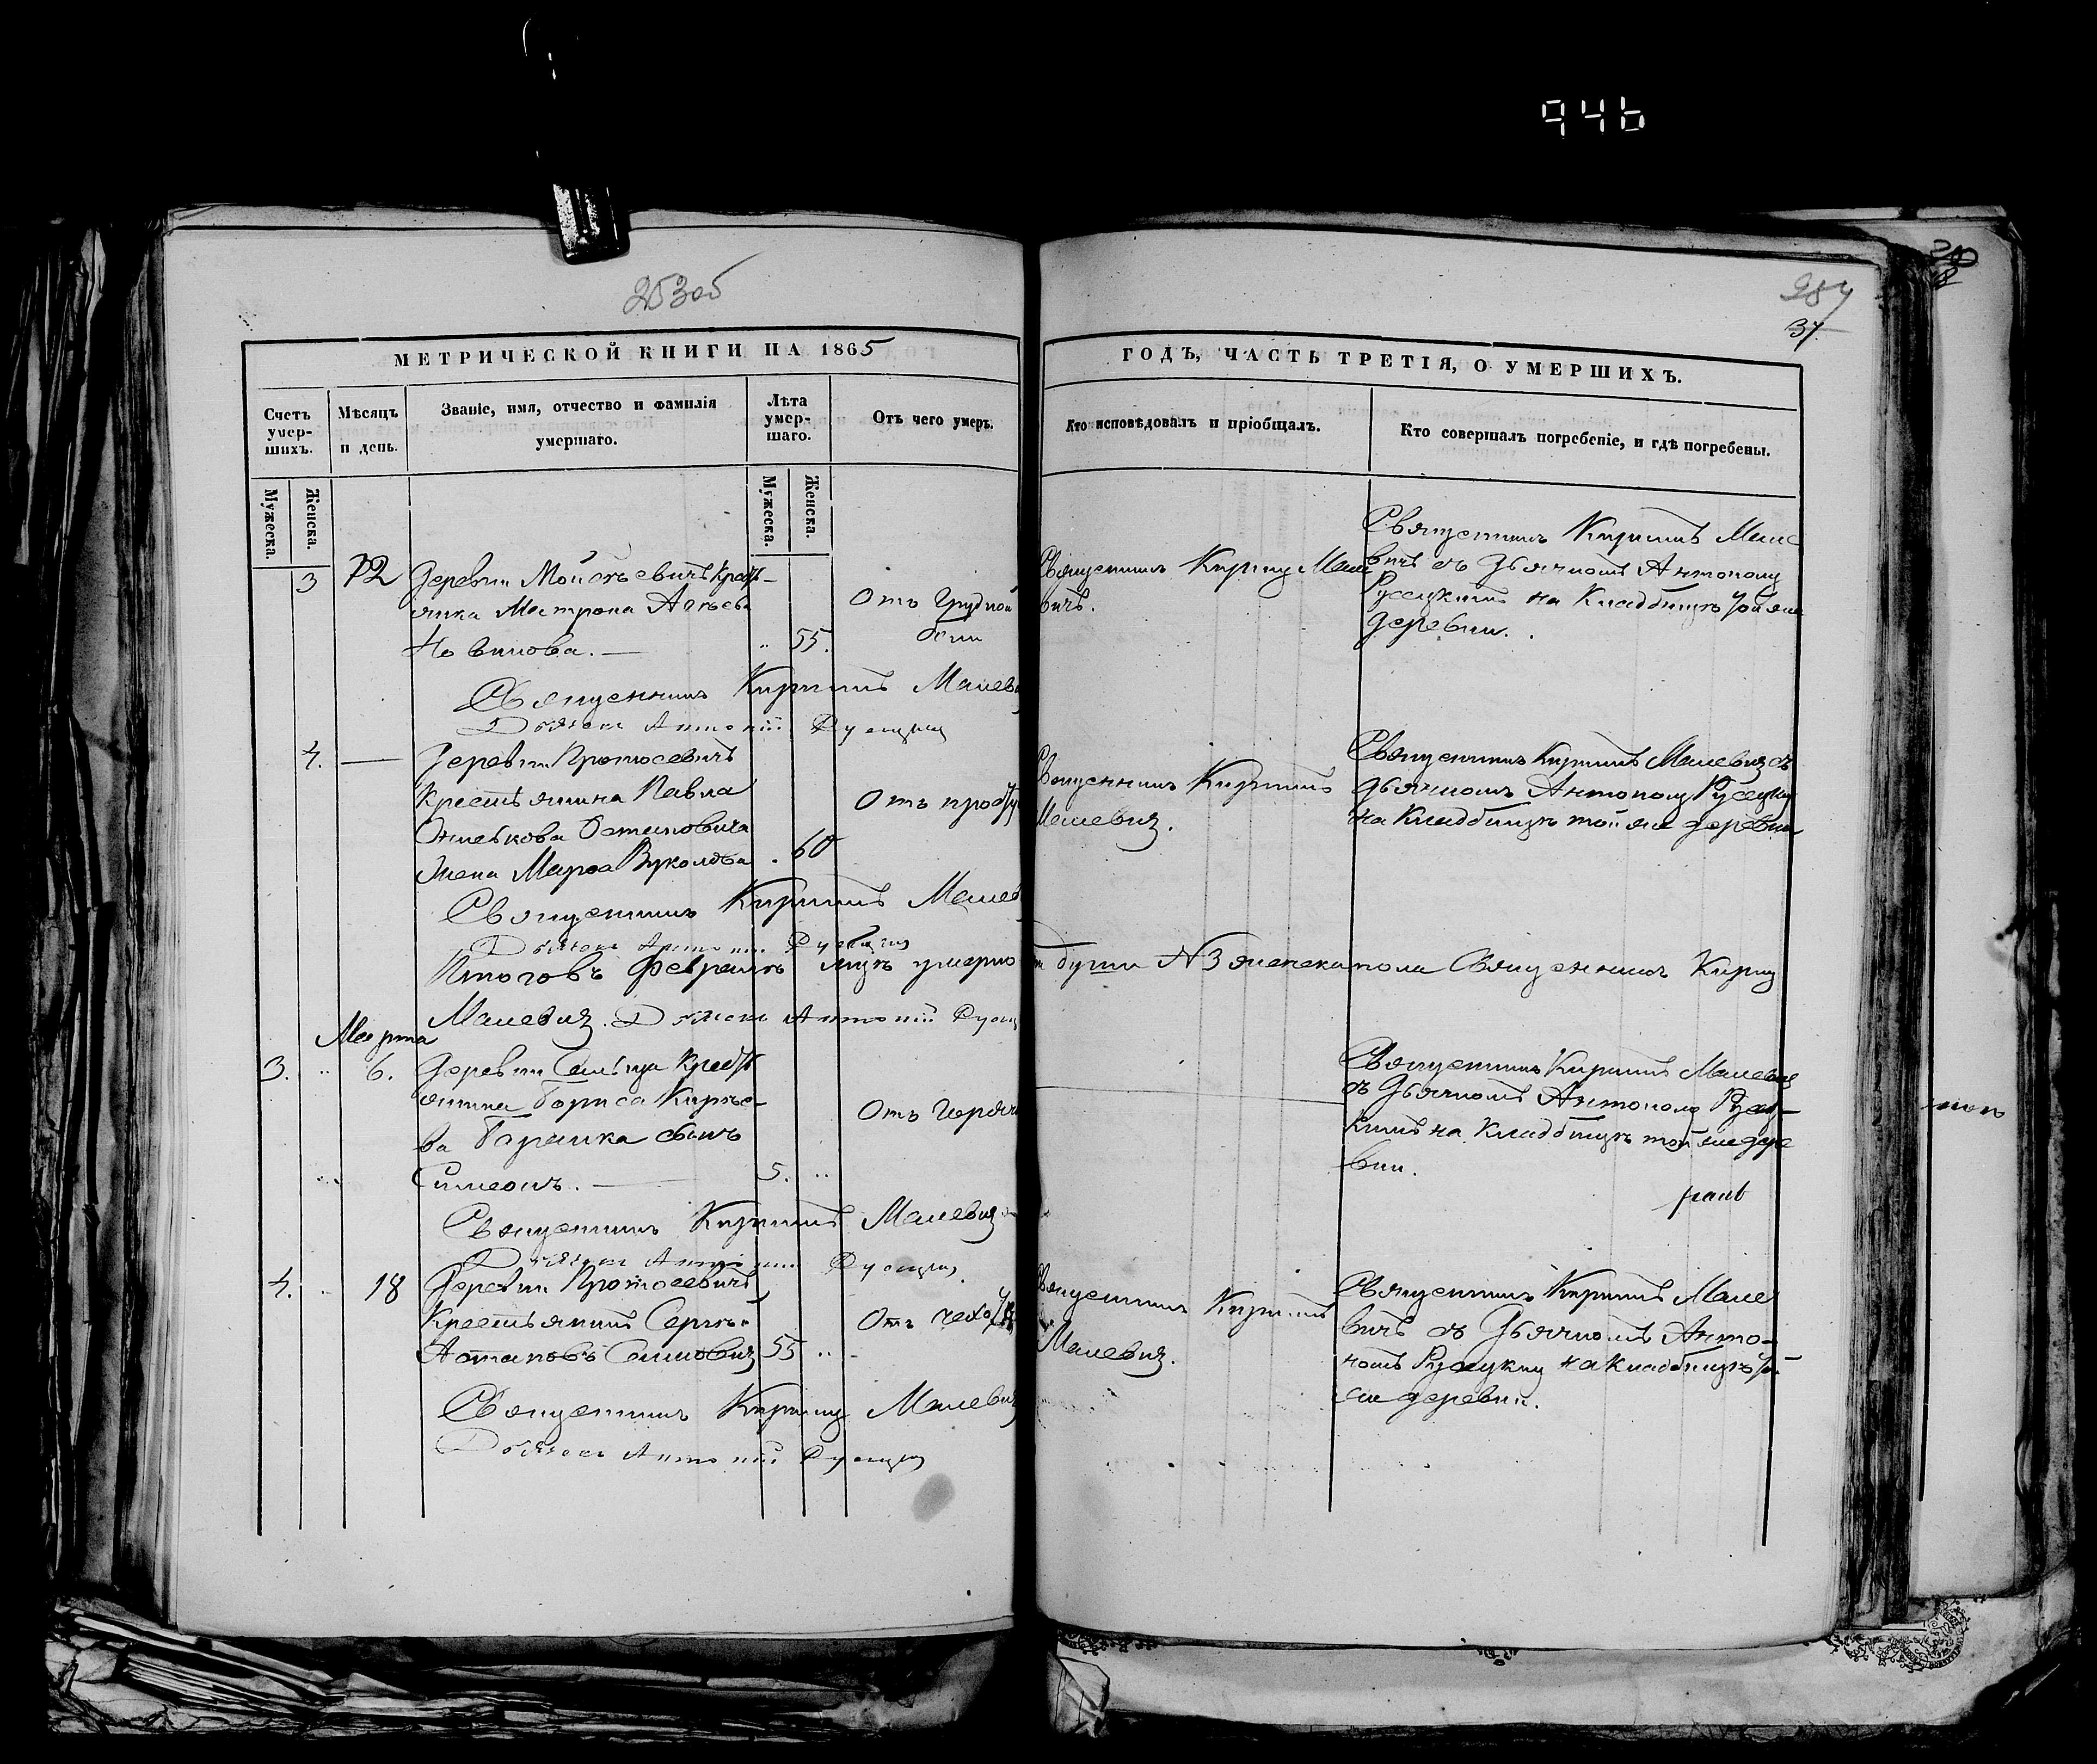 946
253об
287
37.
МЕТРИЧЕСКОЙ КНИГИ НА 1865
ГОДЪ, ЧАСТЬ ТРЕТІЯ, О УМЕРШИХЪ.
Счетъ умер-шихъ.
Мужеска.
Женска.
Мѣсяцъ и день.
Званіе, имя, отчество и фамилія умершаго.
Лѣта умер-шаго.
Мужеска.
Женска.
Отъ чего умеръ.
Кто исповѣдовалъ и пріобщалъ.
Кто совершалъ погребеніе, и гдѣ погребены.
3
12
Деревни
янка Матрона
Новикова.
55.
Отъ Грудной
боли
Священникъ Кирилъ Мале
вичъ.
Священникъ Кирилъ Мале
вичъ съ Дьячкомъ Антоном
Русецкимъ на Кладбищѣ той же
деревни.
Священникъ Кирилъ Малеви
Дьячокъ Антоній Русецкій
4.
Деревни Протосевичъ
Крестьянина Павла
Жена Марѳа
60
Отъ просту
Священникъ Кирилъ
Малевич.
Священникъ Кирилъ Малевич съ
дьячкомъ Антоном Русецким
на Кладбищѣ той же деревни
Священникъ Кирилъ Малев
Дьячокъ Антоній Русецкій
Итого въ Февралѣ м̃цѣ умерло
души женска пола Священникъ Кирил
Малевич. Дьячокъ Антоній Русец
Марта
3.
6.
Деревни Сельца Крест
янина Бориса Кирѣе-
ва Баринка сынъ
Симеонъ.
5.
Отъ Горяч
Священникъ Кирилъ Малевич
съ Дьячкомъ Антоном Русец-
кимъ на Кладбищѣ той же дере
вни.
Священникъ Кирилъ Малевич
Дьячокъ Антоній Русецкій
4.
18
Деревни Протосевичъ
Крестьянинъ Сергѣй
Астаповъ
55
Отъ чахотк
Священникъ Кирилъ
Малевич.
Священникъ Кирилъ Мале
вичъ съ Дьячкомъ Анто-
номъ Русецким на Кладбищѣ той
же деревни.
Священникъ Кирил Малевич
Дьячокъ Антоній Русецкій